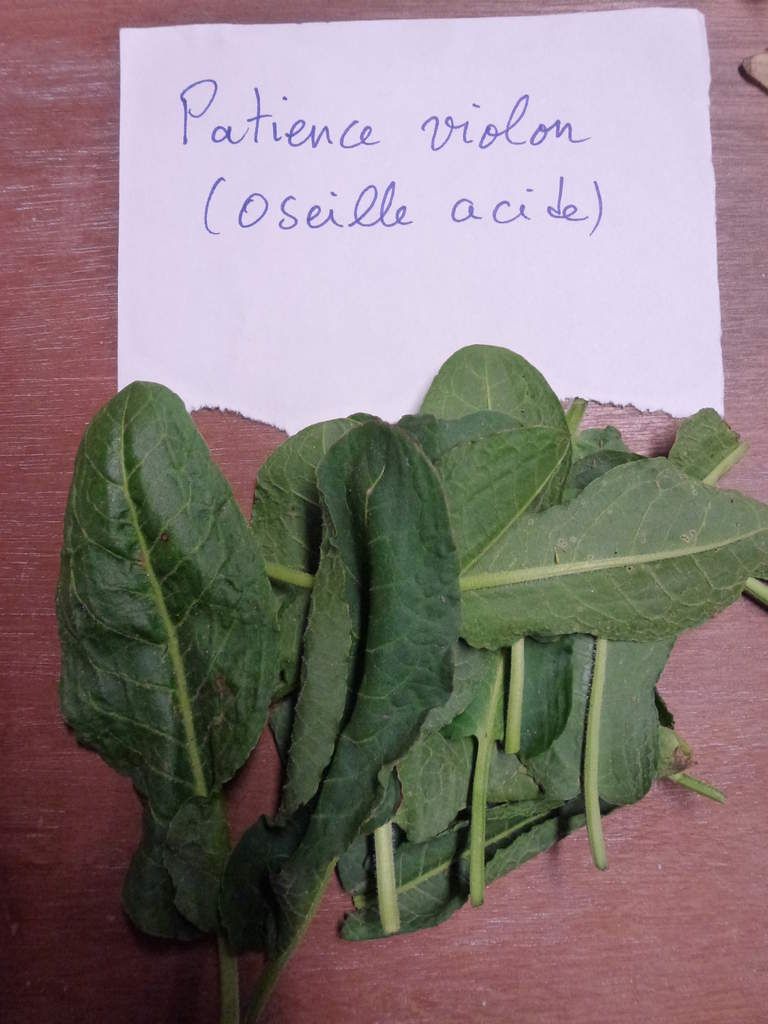 Patience violon
(Oseille acide)